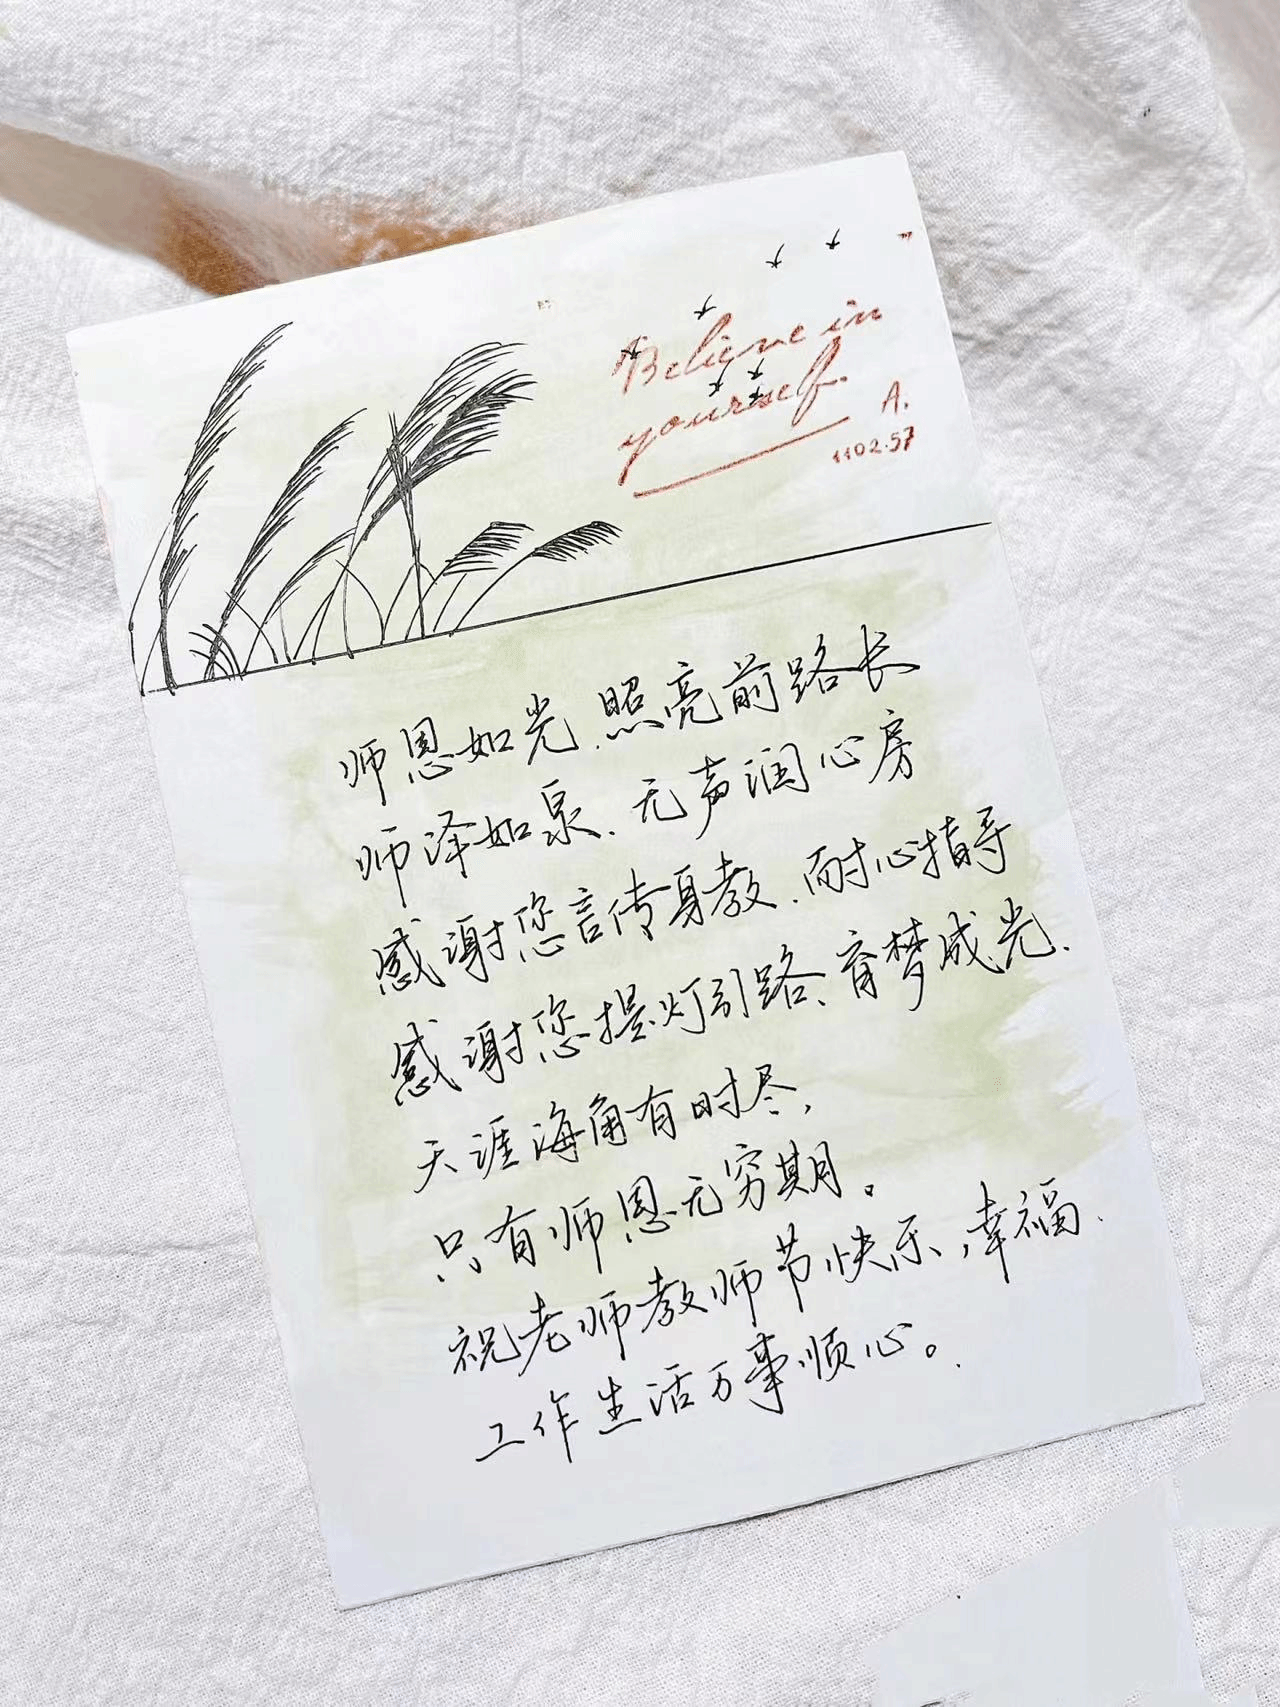 Believe in
yourself.
A.
1102.57
师恩如光、照亮前路长
师泽如泉、无声润心房
感谢您言传身教、耐心指导
感谢您提灯引路、育梦成光、
天涯海角有时尽，
只有师恩无穷期。
祝老师教师节快乐，幸福、
工作生活万事顺心。